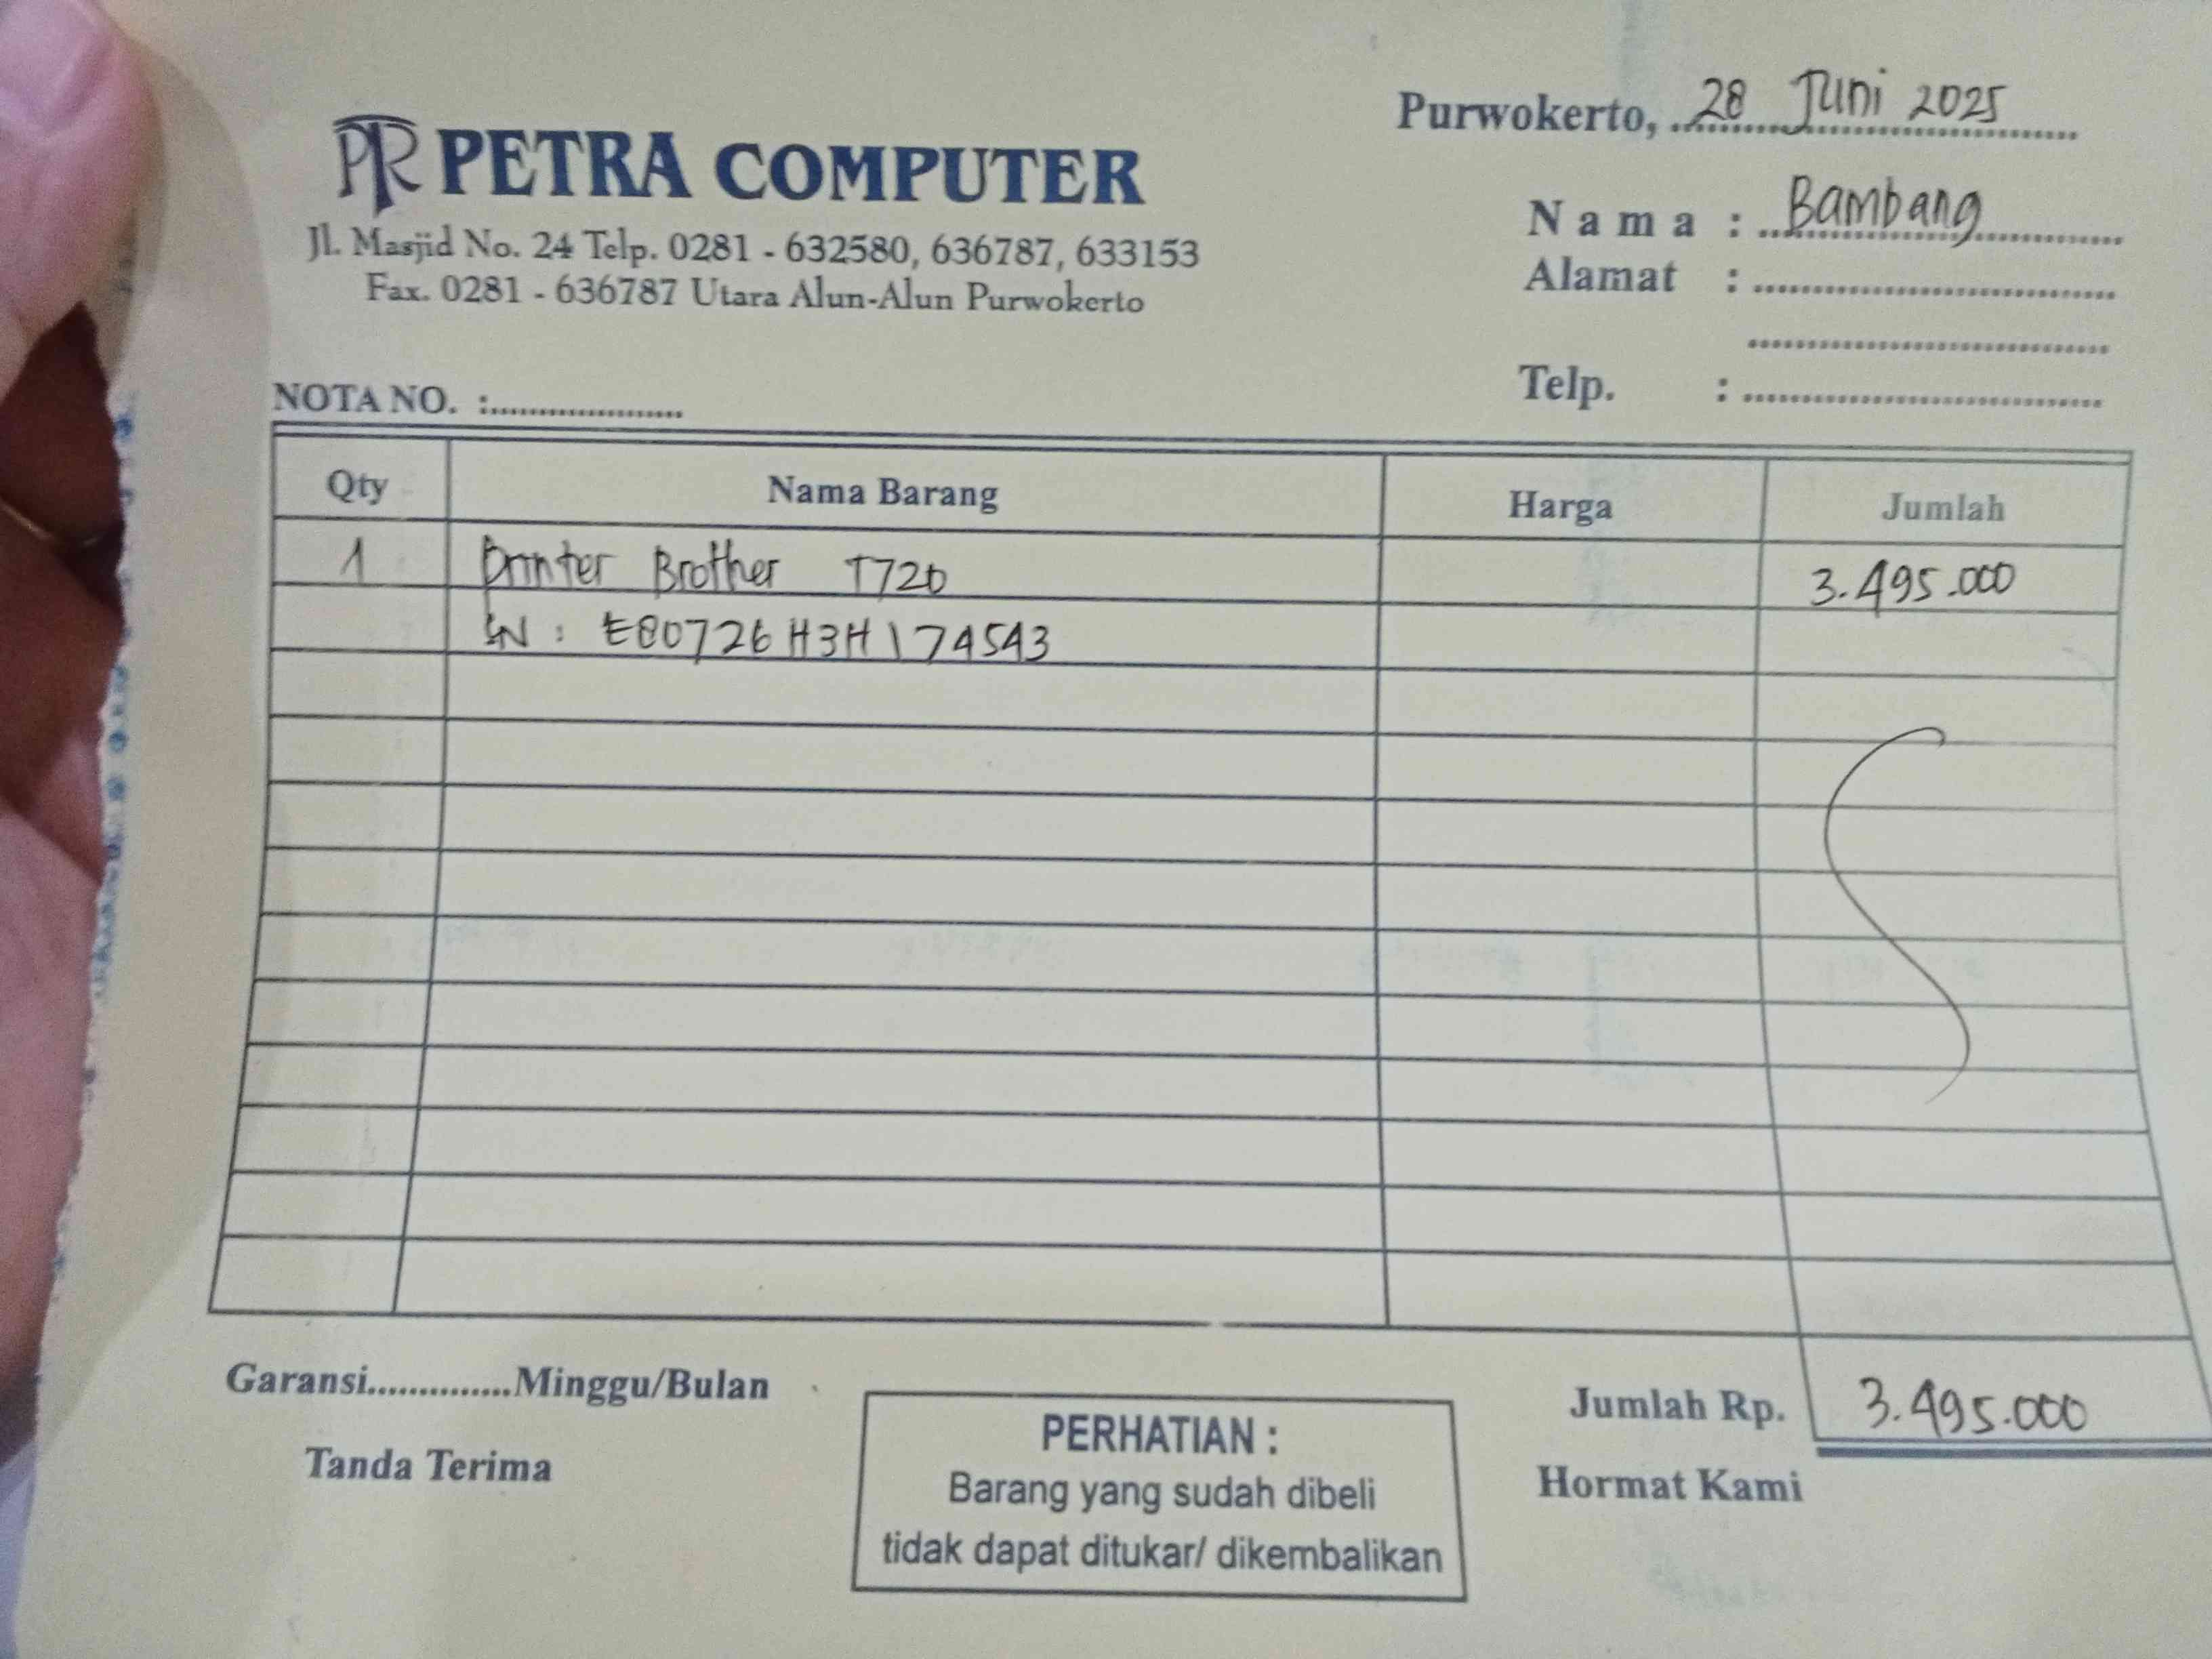 PR PETRA COMPUTER
Jl. Masjid No. 24 Telp. 0281 - 632580, 636787, 633153
Fax. 0281 - 636787 Utara Alun-Alun Purwokerto
Purwokerto, 28 Juni 2025
Nama : Bambang
Alamat :
Telp. :
NOTA NO. :
Qty Nama Barang Harga Jumlah
1 Printer Brother T720 3.495.000
SN : E80726H3H174543
Garansi..............Minggu/Bulan
Jumlah Rp. 3.495.000
Tanda Terima
PERHATIAN :
Barang yang sudah dibeli
tidak dapat ditukar/ dikembalikan
Hormat Kami